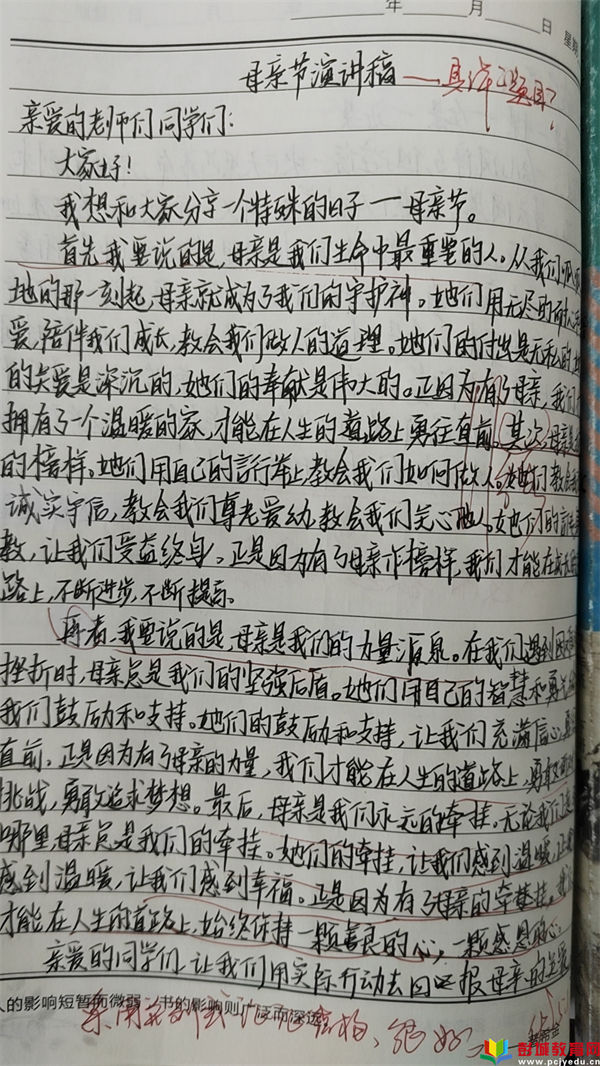 年 月 日 星期
母亲节演讲稿 ——具体题目？
亲爱的老师们同学们：
大家好！
我想和大家分享一个特殊的日子一母亲节。
首先我要说的是，母亲是我们生命中最重要的人。从我们呱呱
地的那一刻起，母亲就成为了我们的守护神。她们用无尽的耐心
爱，陪伴我们成长，教会我们做人的道理。她们的付出是无私的，她
的关爱是深沉的，她们的奉献是伟大的。正因为有了母亲，我们
拥有了一个温暖的家，才能在人生的道路上勇往直前。其次，母亲是
的榜样。她们用自己的言行举止，教会我们如何做人。她们教会我
诚实守信，教会我们尊老爱幼，教会我们关心他人。她们的言传
教，让我们受益终身。正是因为有了母亲作榜样，我们才能在成长的
路上，不断进步，不断提高。
再者，我要说的是，母亲是我们的力量源泉。在我们遇到困
挫折时，母亲总是我们的坚强后盾。她们用自己的智慧和勇气
我们鼓励和支持。她们的鼓励和支持，让我们充满信心，勇
直前。正是因为有了母亲的力量，我们才能在人生的道路上，勇敢
挑战，勇敢追求梦想。最后，母亲是我们永远的牵挂。无论我们走
哪里，母亲总是我们的牵挂。她们的牵挂，让我们感到温暖，
感到温暖，让我们感到幸福。正是因为有了母亲的牵挂，我
才能在人生的道路上，始终保持一颗善良的心，一颗感恩的心。
亲爱的同学们，让我们用实际行动去回报母亲的关爱
人的影响短暂而微弱，书的影响则广泛而深远
结构，很好
彭城教育网
www.pcjyedu.cn